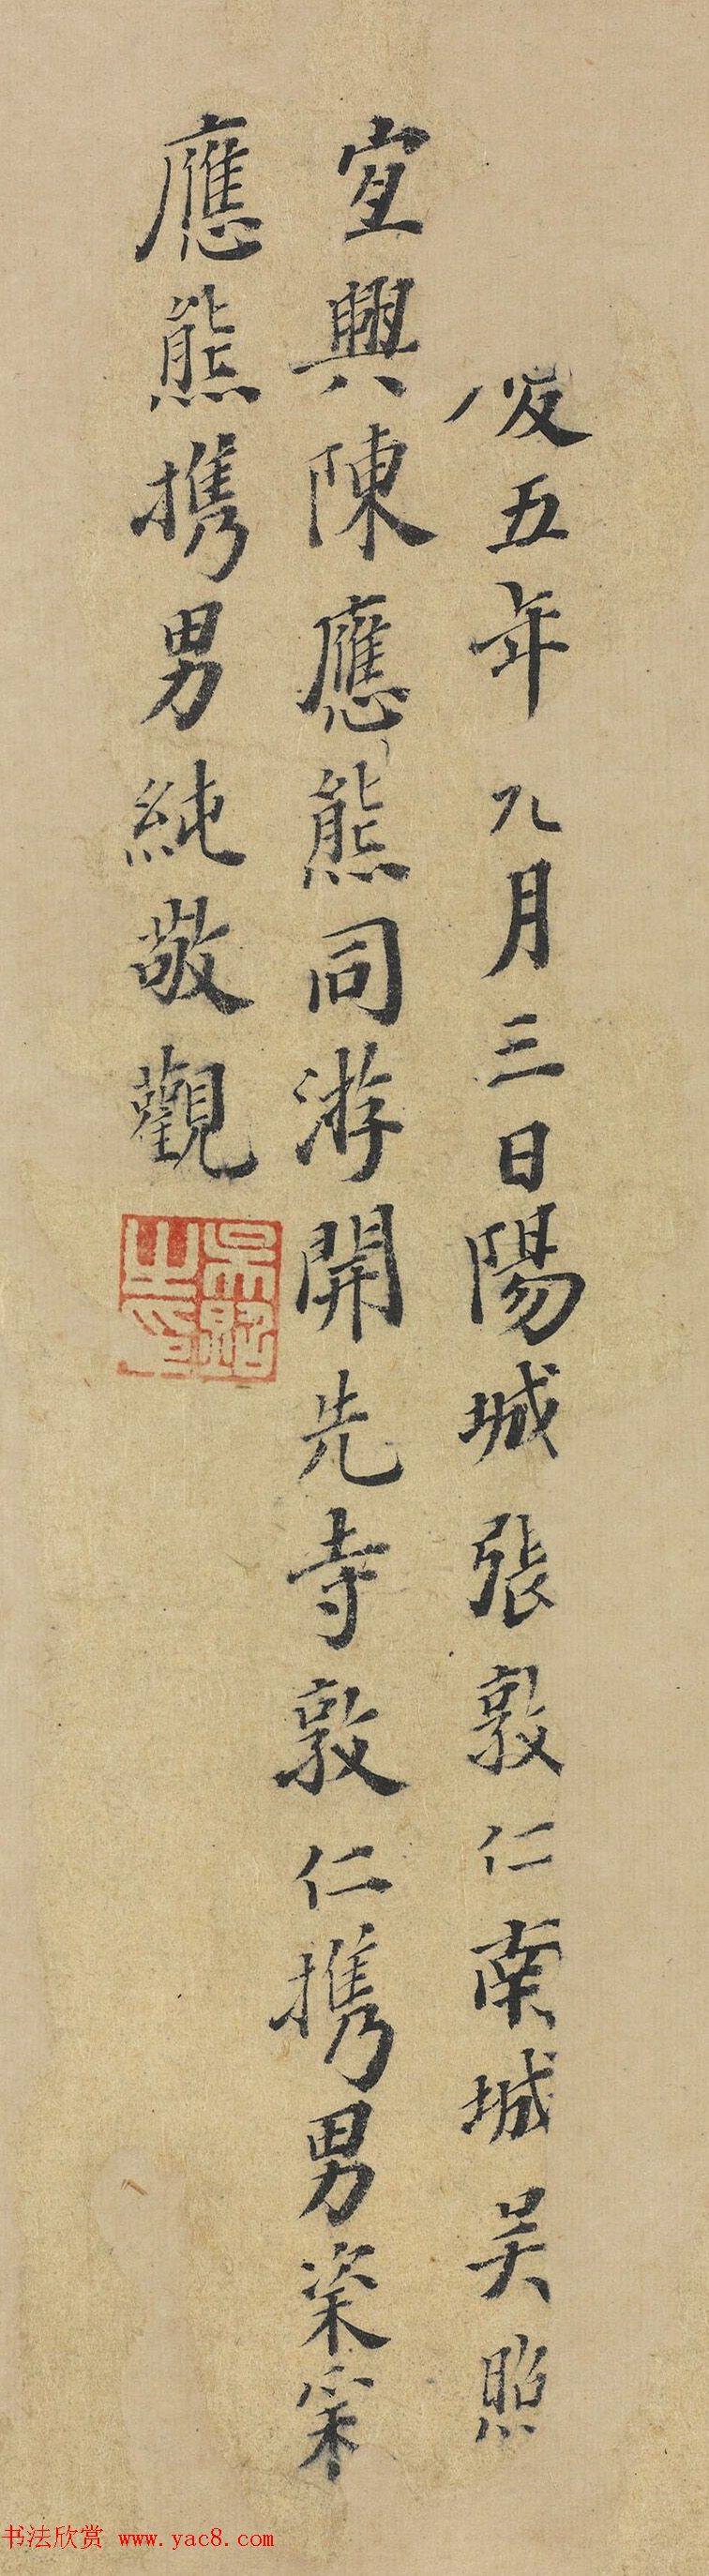 五年九月三日陽城張敦仁南城吴照
宜興陳應熊同游開先寺敦仁携男
應熊携男純敬觀
吴照之印
书法欣赏 www.yac8.com